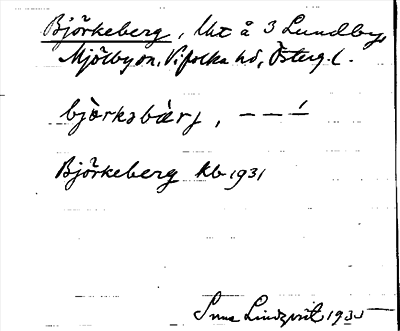 Björkeberg, Ut å 3 Lundby,
Mjölby sn, Vifolka hd, Österg. l.
bjòrkəbær̀j, – – ´
Björkeberg Kb 1931
Lindqvist 1935